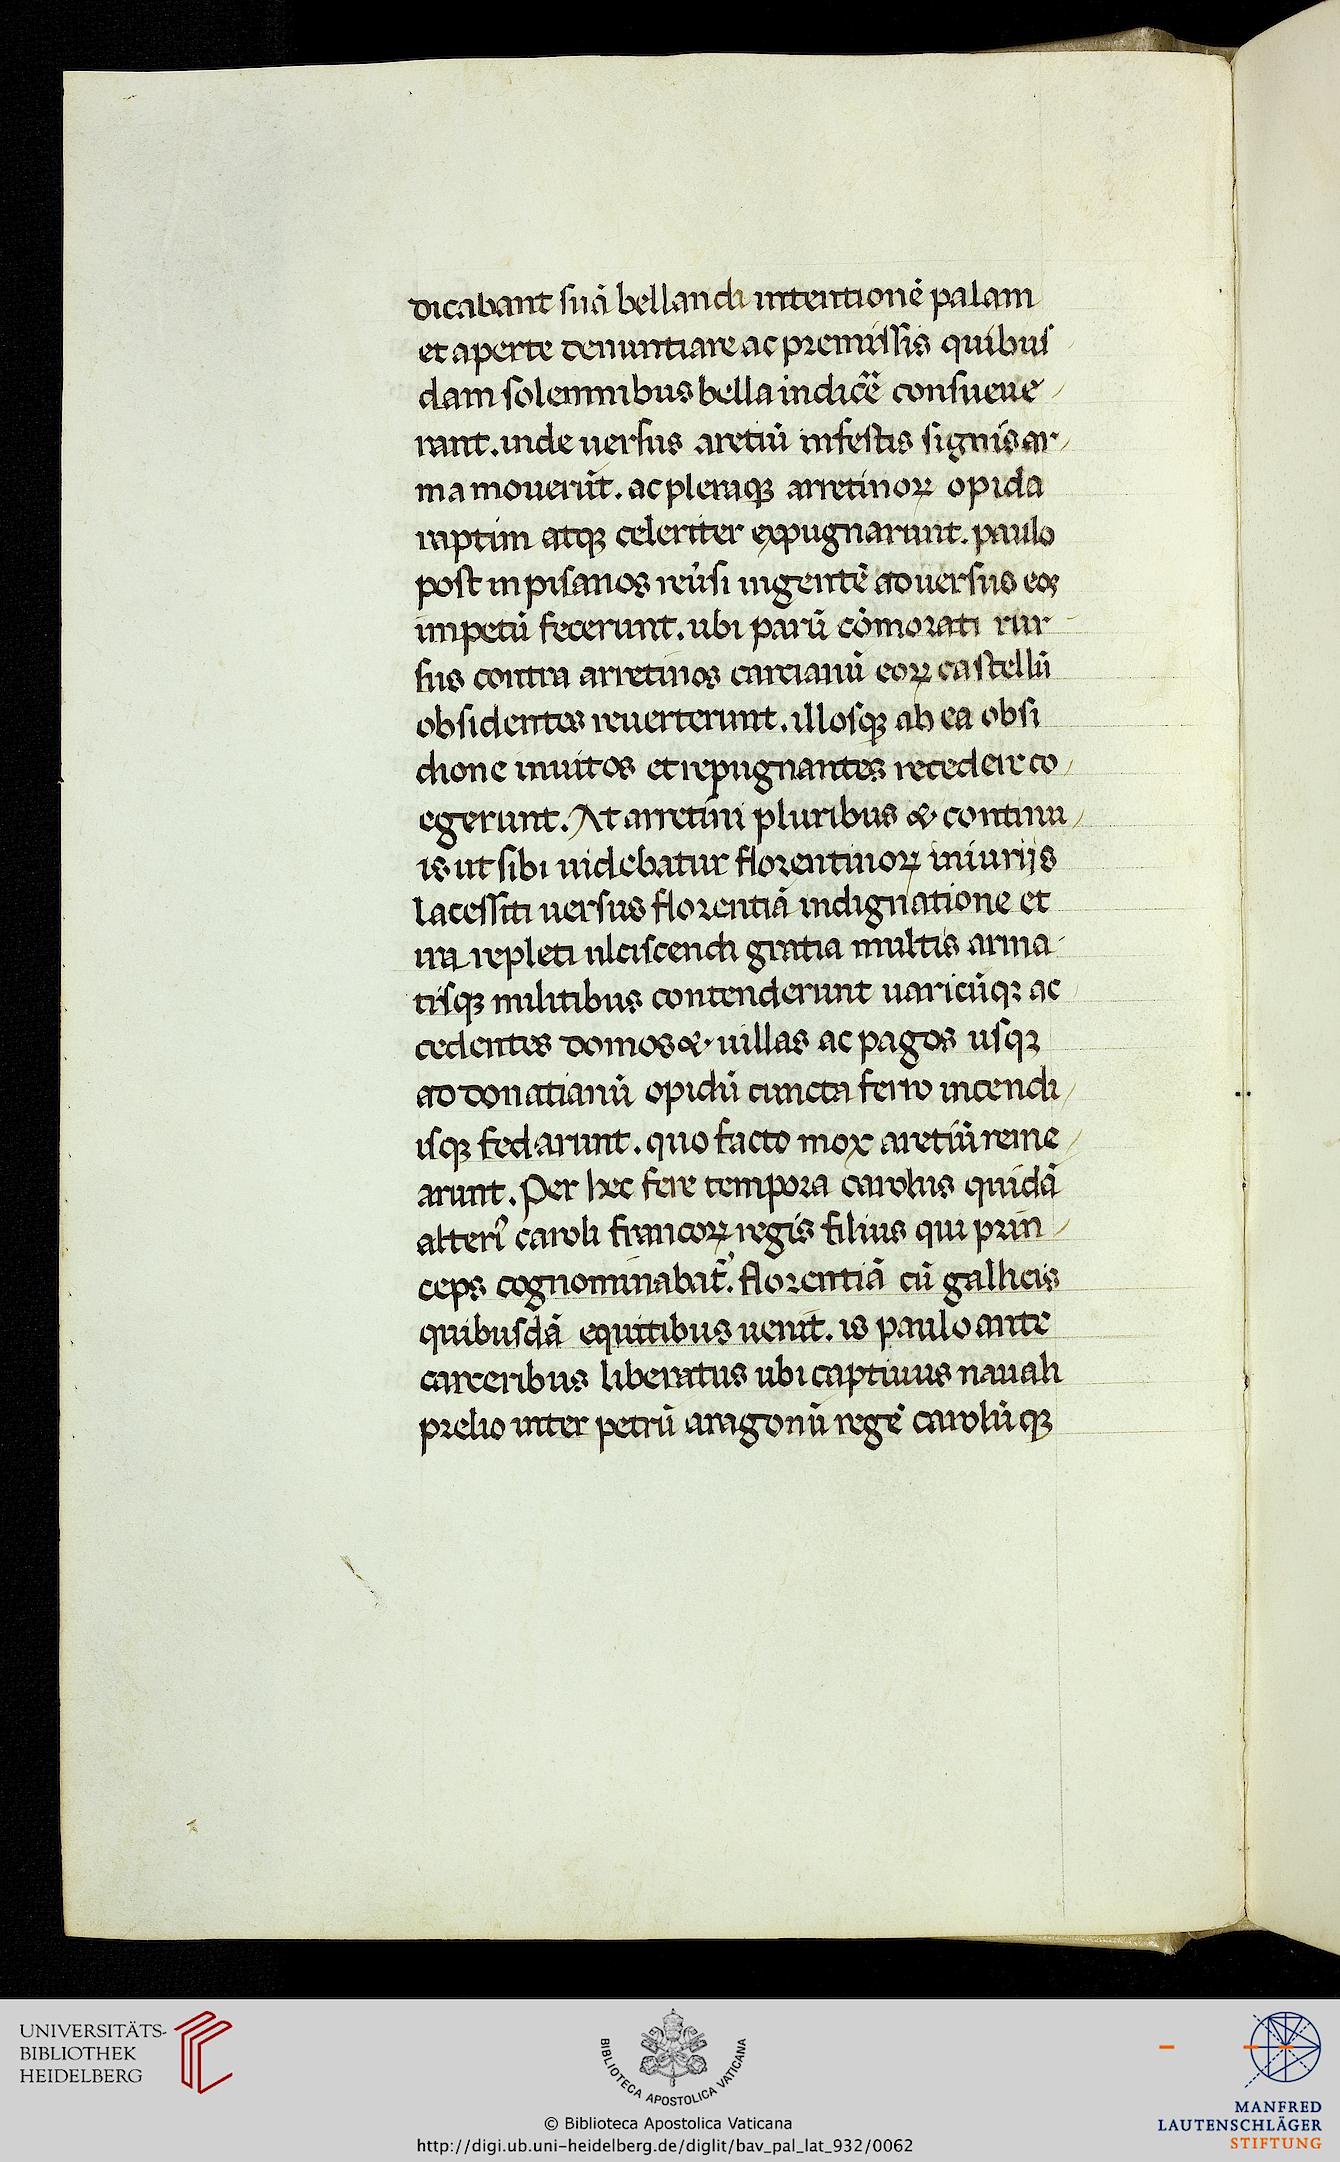 dicabant suā bellandi intentionē palam
et aperte denuntiare ac premissis quibus
dam solemnibus bella indicēr consueue
rant. inde uersus aretiū infestis signis ar
ma mouerūt. ac pleraqꝫ arretinoꝝ opida
raptim atqꝫ celeriter expugnarunt. paulo
post in pisanos reūsi ingentē aduersus eos
impetū fecerunt. ubi parū cōmorati rur
sus contra arretinos carcianū eoꝝ castellū
obsidentes reuerterunt. illosqꝫ ab ea obsi
dione inuitos et repugnantes recedere co
egerunt. At arretini pluribus & continu
is ut sibi uidebatur florentinoꝝ iniurijs
lacessiti uersus florentiā indignatione et
ira repleti ulciscendi gratia multis arma
tisqꝫ militibus contenderunt uaricūqꝫ ac
cedentes domos & uillas ac pagos usqꝫ
ad donatianū opidū cuncta ferro incendi
isqꝫ fedarunt. quo facto mox aretiū reme
arunt. Per hec fere tempora carolus quidā
alteriꝰ caroli francoꝝ regis filius qui prin
ceps cognominabat̄. florentiā cū gallicis
quibusdā equitibus uenit. is paulo ante
carceribus liberatus ubi captiuus nauali
prelio inter petrū aragonū regē carolūqꝫ
UNIVERSITÄTS-
BIBLIOTHEK
HEIDELBERG
BIBLIOTECA APOSTOLICA VATICANA
© Biblioteca Apostolica Vaticana
http://digi.ub.uni-heidelberg.de/diglit/bav_pal_lat_932/0062
MANFRED
LAUTENSCHLÄGER
STIFTUNG